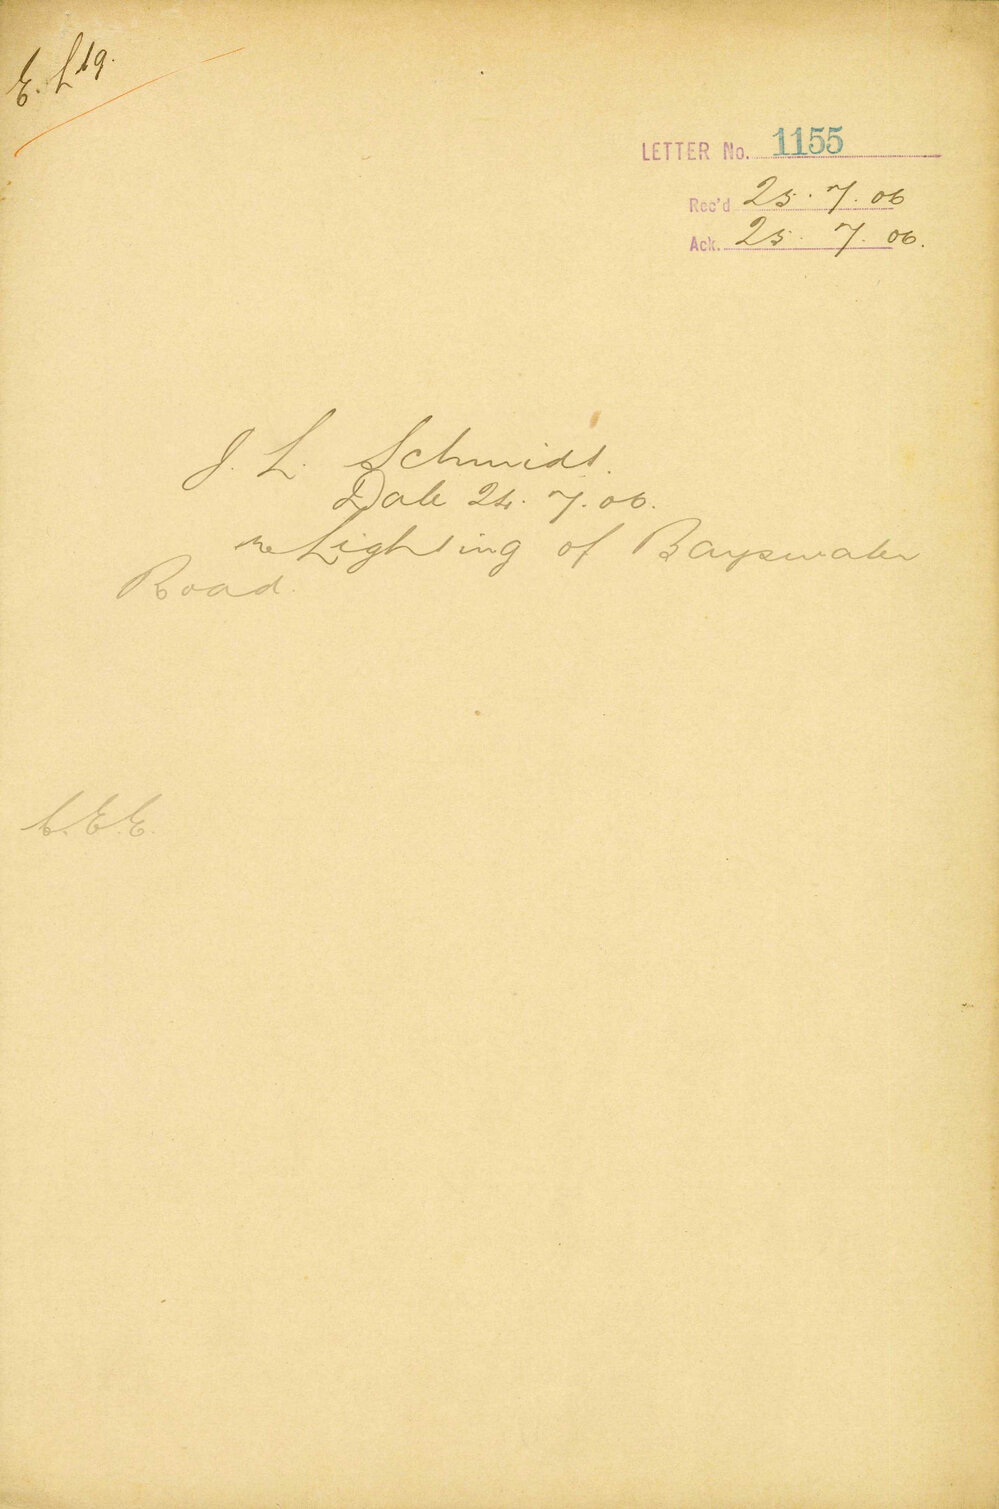 E. Ltg.
LETTER No. 1155
Rec'd 25.7.06
Ack. 25.7.06.
J. L. Schmidt.
Date 24.7.06.
re Lighting of Bayswater
Road.
C.E.E.